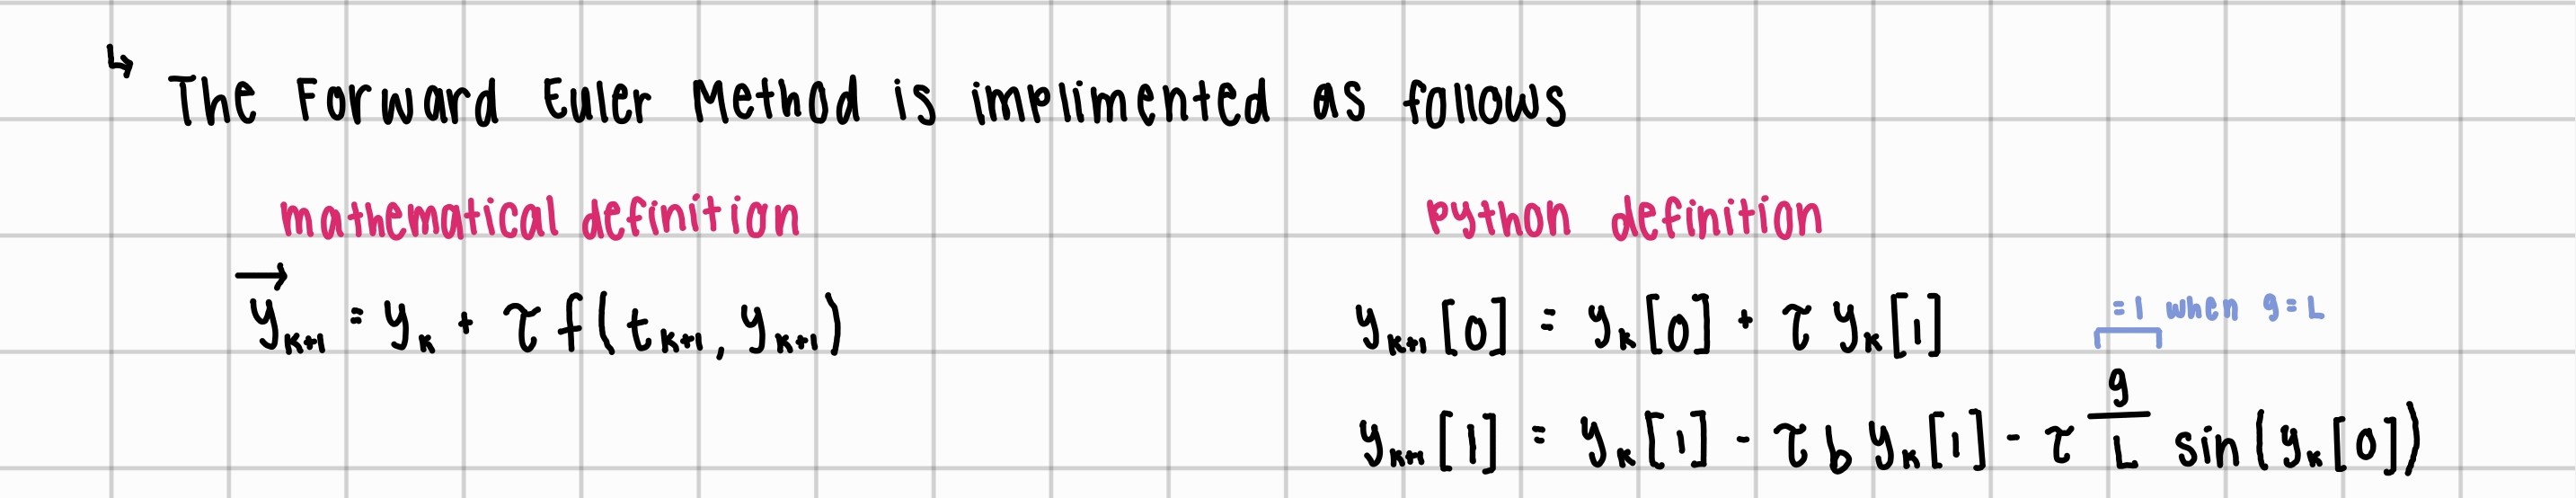 ↳ The Forward Euler Method is implimented as follows
mathematical definition
python definition
$\overrightarrow{y}_{k+1} = y_k + \tau f(t_{k+1}, y_{k+1})$
$y_{k+1}[0] = y_k[0] + \tau y_k[1]$
= 1 when g = L
$y_{k+1}[1] = y_k[1] - \tau b y_k[1] - \tau \frac{g}{L} \sin(y_k[0])$